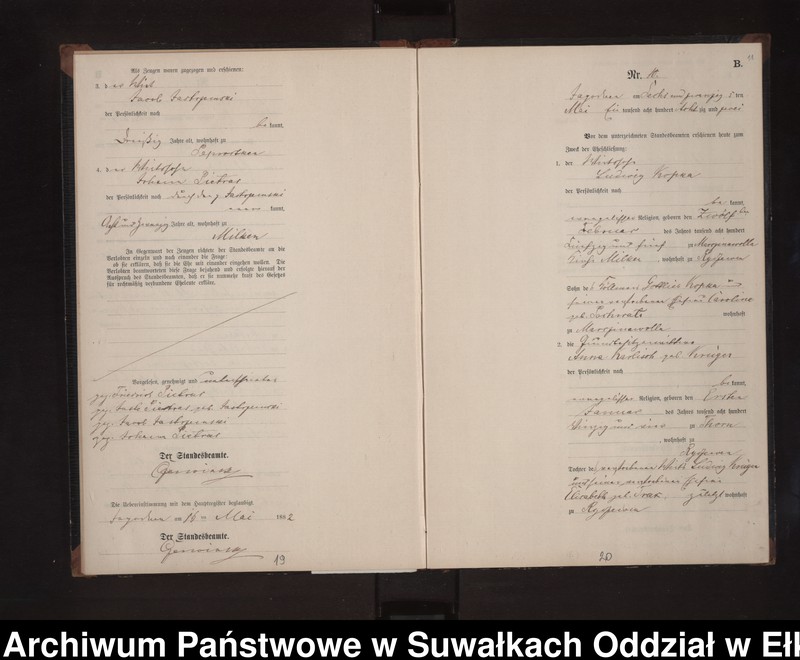 Als Zeugen waren zugezogen und erschienen:
3. der Wirt
Jacob Jastrzemski
der Persönlichkeit nach
be kannt,
Dreißig Jahre alt, wohnhaft zu
4. der
Johann Pietras
der Persönlichkeit nach durch den p. Jastrzemski
kannt,
Acht und zwanzig Jahre alt, wohnhaft zu
Milken
In Gegenwart der Zeugen richtete der Standesbeamte an die
Verlobten einzeln und nach einander die Frage:
ob sie erklären, daß sie die Ehe mit einander eingehen wollen. Die
Verlobten beantworteten diese Frage bejahend und erfolgte hierauf der
Ausspruch des Standesbeamten, daß er sie nunmehr kraft des Gesetzes
für rechtmäßig verbundene Eheleute erkläre.
Vorgelesen, genehmigt und unterschrieben
gez. Friedrich Pietras
gez. Pietras geb. Jastrzemski
gez. Jacob Jastrzemski
gez. Johann Pietras
Der Standesbeamte.
Die Uebereinstimmung mit dem Hauptregister beglaubigt
Jagodnen am 16ten Mai 1882
Der Standesbeamte.
19
B.
Nr. 11.
Jagodnen am Sechs und zwanzig ten
Mai Ein tausend acht hundert acht zig und zwei
Vor dem unterzeichneten Standesbeamten erschienen heute zum
Zweck der Eheschließung:
1. der Wirtssohn
Ludwig Kopka
der Persönlichkeit nach
be kannt,
evangelischer Religion, geboren den Zwölften
Februar des Jahres tausend acht hundert
Fünfzig und fünf zu Marczinawolla
Kreis , wohnhaft zu
Sohn des Gottlieb Kopka und
seiner verstorbenen Ehefrau Caroline
geb. wohnhaft
zu Marczinawolla
2. die Grundbesitzerwittwe
Anna Karlisch geb. Krüger
der Persönlichkeit nach
be kannt,
evangelischer Religion, geboren den Ersten
Januar des Jahres tausend acht hundert
Vierzig und vier zu
, wohnhaft zu
Tochter des verstorbenen Wirts Ludwig Krüger
und seiner verstorbenen Ehefrau
Elisabeth geb. zuletzt wohnhaft
zu
20
Archiwum Państwowe w Suwałkach Oddział w Ełk